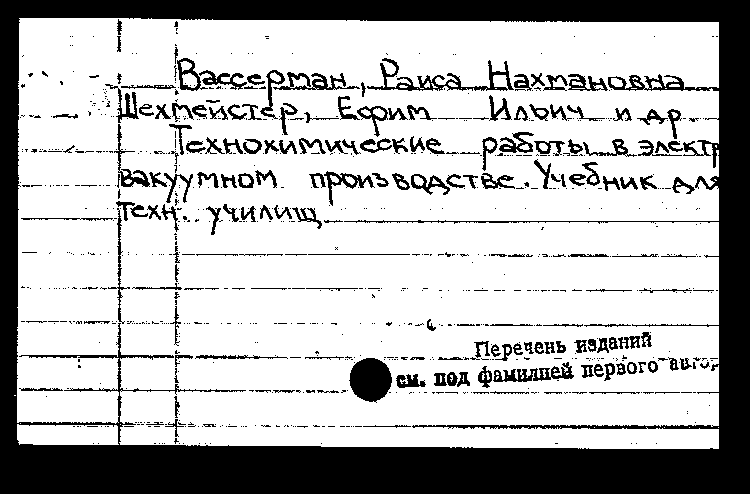 Вассерман, Раиса Нахмановна
Шехмейстер, Ефим Ильич и др.
Технохимические работы в электр
вакуумном производстве. Учебник для
техн. училищ
Перечень изданий
см. под фамилией первого автор